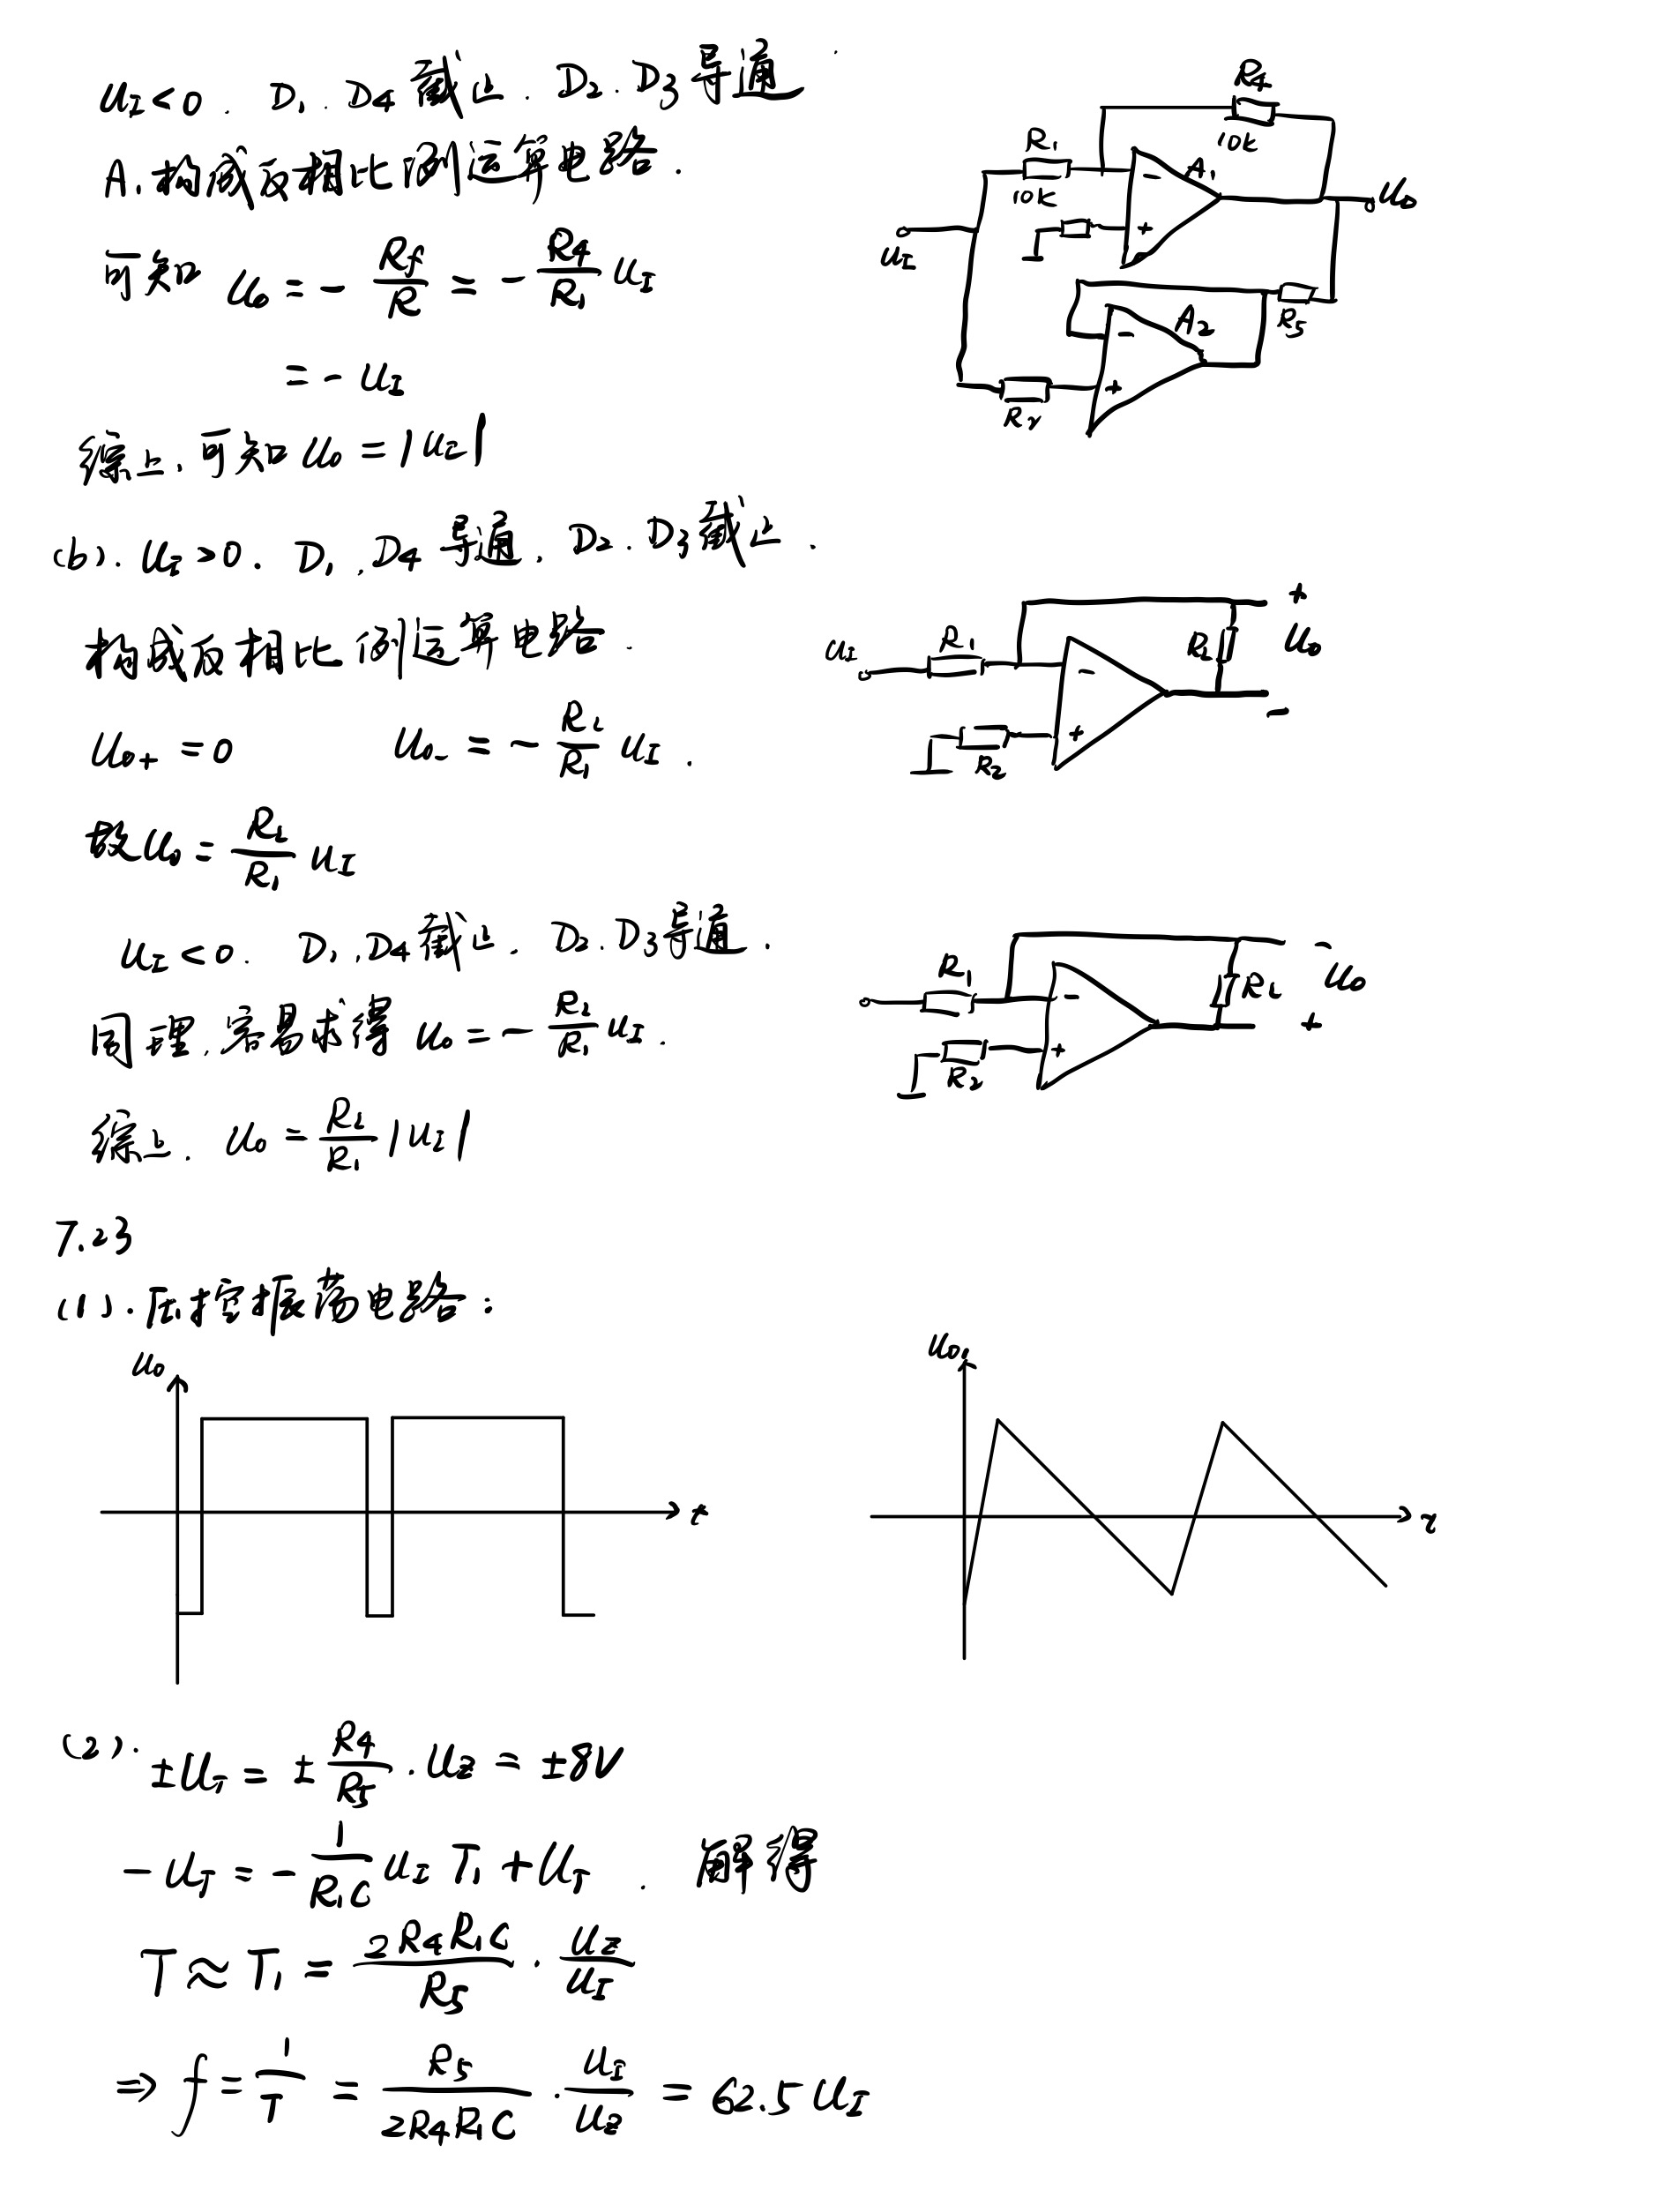 u_I<0. D₁. D₄截止. D₂. D₃导通
A₁构成反相比例运算电路.
可知 u_o = - R_f/R = - R₄/R₁ u_I
= - u_I
综上,可知 u_o = |u_I|
R₄
10K
R₁
10K
A₁
-
+
u_o
u_I
A₂
-
+
R₅
R₂
(b). u_I>0. D₁.D₄导通. D₂.D₃截止.
构成反相比例运算电路.
u_o+ = 0 u_o- = - R_L/R₁ u_I.
故u_o = R_L/R₁ u_I
u_I
R₁
-
+
R₂
R_L
+
u_o
-
u_I<0. D₁.D₄截止. D₂.D₃导通.
同理,容易求得 u_o = - R_L/R₁ u_I.
综上. u_o = R_L/R₁ |u_I|
R₁
-
+
R₂
R_L
-
u_o
+
7.23
(1).压控振荡电路:
u_o
t
u_o₁
τ
(2). ±U_T = ± R₄/R₅ · U_Z = ±8V
-U_T = - 1/R₁C u_I T₁ + U_T. 解得
T ≈ T₁ = 2R₄R₁C/R₅ · U_Z/u_I
⇒ f = 1/T = R₅/2R₄R₁C · u_I/U_Z = 62.5 u_I